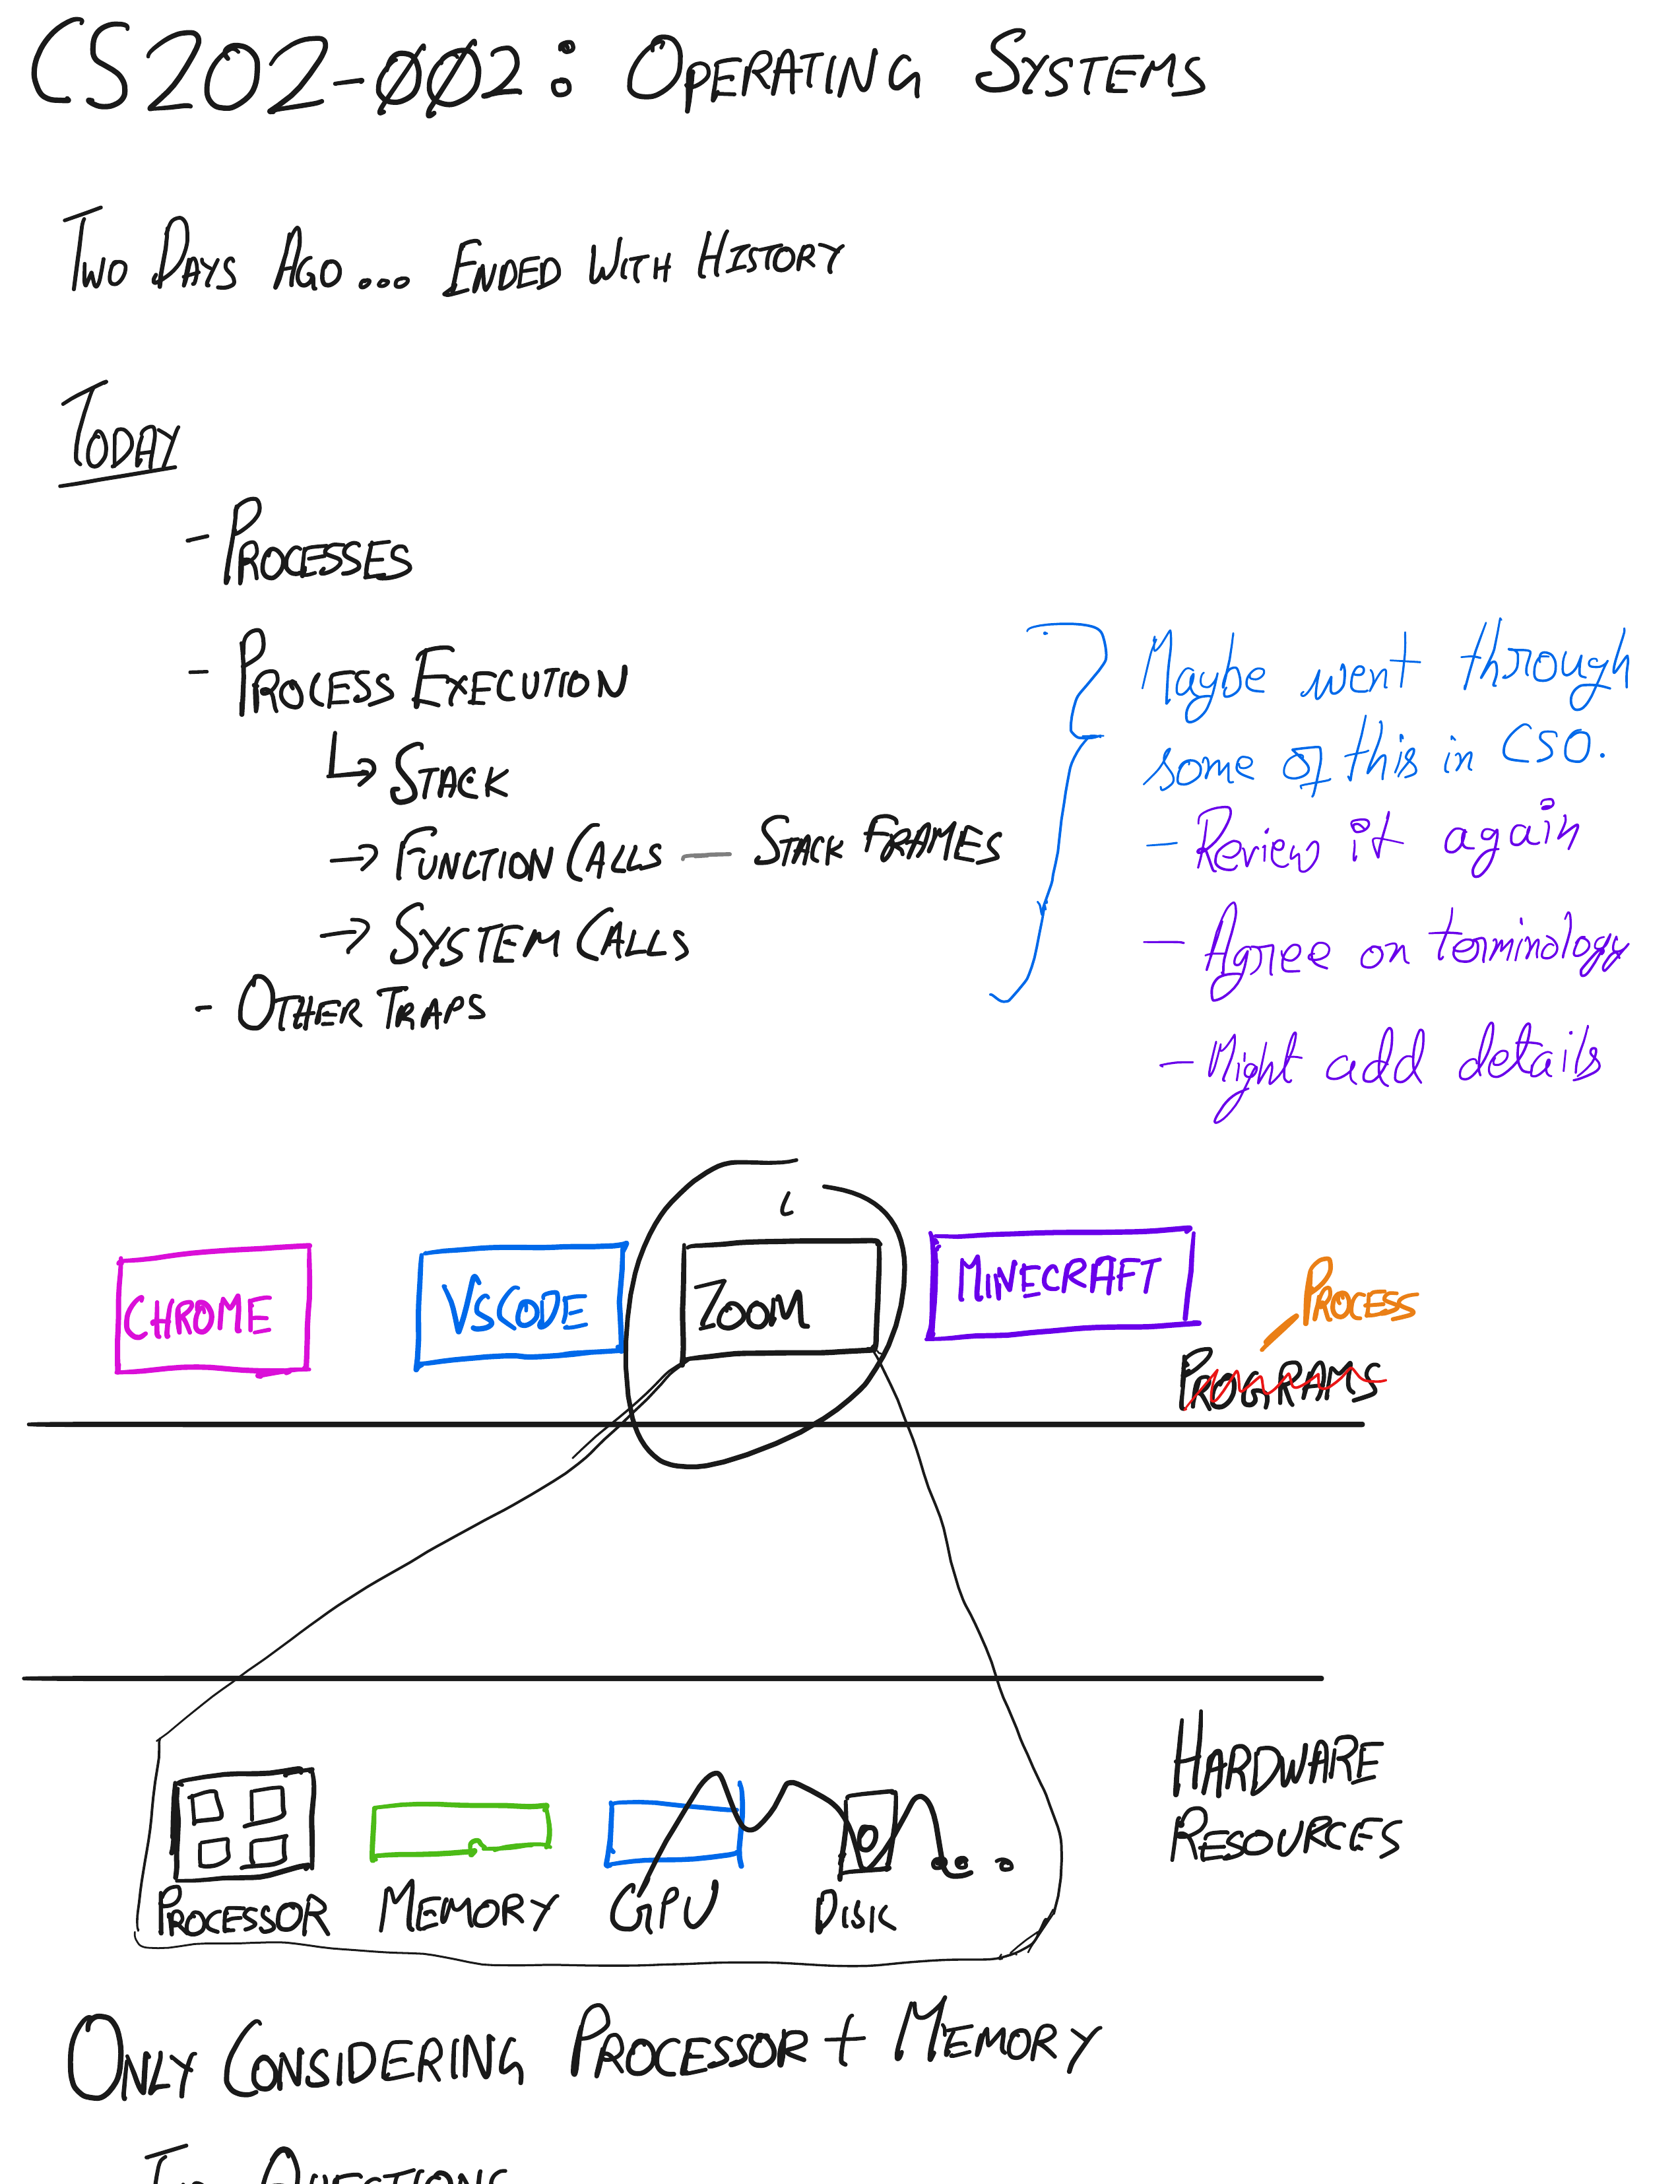 CS202-002: OPERATING SYSTEMS
TWO DAYS AGO... ENDED WITH HISTORY
TODAY
- PROCESSES
- PROCESS EXECUTION
↳ STACK
→ FUNCTION CALLS — STACK FRAMES
→ SYSTEM CALLS
- OTHER TRAPS
Maybe went through
some of this in CSO.
- Review it again
- Agree on terminology
- Might add details
CHROME
VSCODE
ZOOM
MINECRAFT
PROCESS
PROGRAMS
HARDWARE
RESOURCES
PROCESSOR
MEMORY
GPU
DISK
...
ONLY CONSIDERING PROCESSOR + MEMORY
QUESTIONS